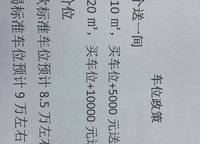 车位政策
送一间
10 m²，买车位+5000 元送
20 m²，买车位+10000 元
位
标准车位预计 8.5 万左
标准车位预计 9 万左右